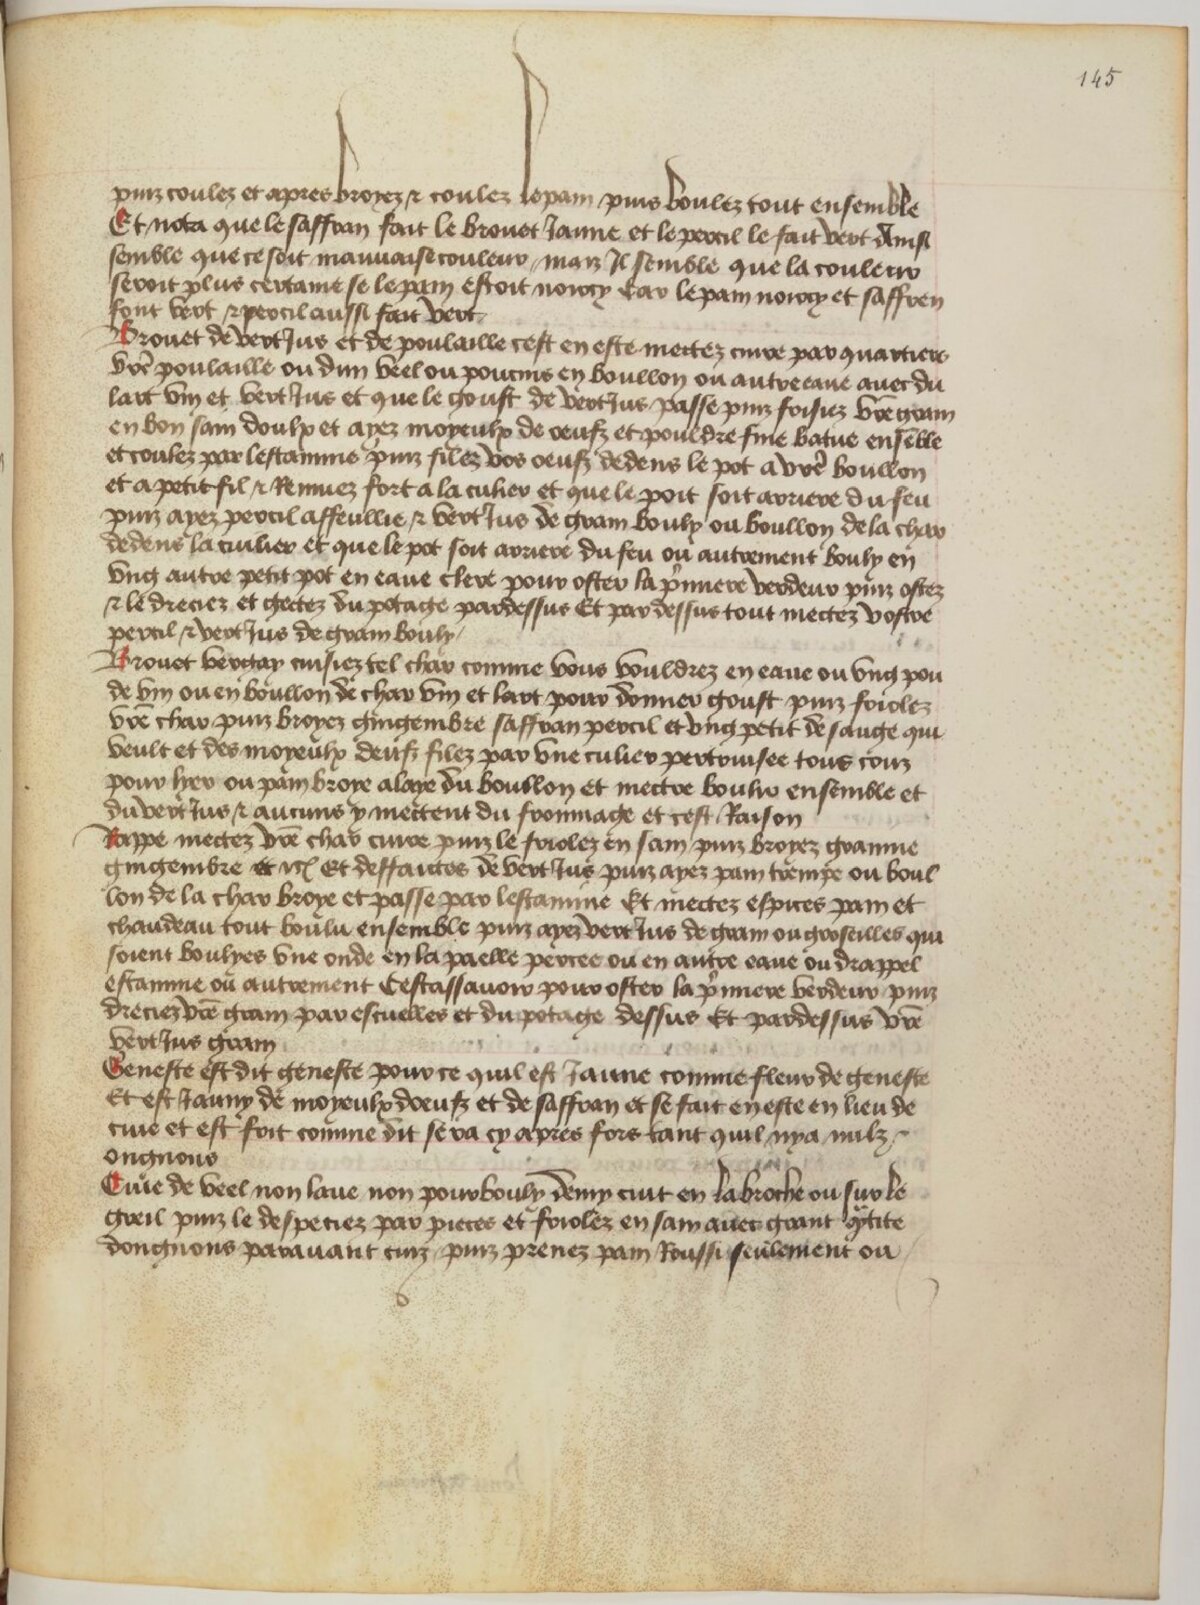 145
puiz coulez et apres broyez ⁊ coulez lepain puis boulez tout ensemble
Et nota que le saffran fait le brouet Jaune et le percil le fait vert Ainsi
semble que ce soit mauuaise couleur maiz Il semble que la couleur
seroit plus certaine se le pain estoit noircy Car le pain noircy et saffren
font vert ⁊ percil aussi fait vert
Brouet de vertJus et de poulaille cest en este mectez cuire par quartiers
vre poulaille ou dun veel ou poucins en boullon ou autre eaue auec du
lart vin et vertJus et que le goust de vertJus passe puiz frisiez vre grain
en bon sain doulx et ayez moyeulx de oeufz et pouldre fine batue ensemble
et coulez par lestamine puiz filez vos oeufz dedens le pot a vre boullon
et a petit fil ⁊ Remuez fort a la culier et que le pot soit arriere du feu
puiz ayez percil affeullie ⁊ vertJus de grain bouly ou boullon de la char
dedens la cuilier et que le pot soit arriere du feu ou autrement bouly en
vng autre petit pot en eaue clere pour oster la pmiere verdeur puiz ostez
⁊ le dreciez et gectez du potage pardessus Et par dessus tout mectez vostre
percil ⁊ vertJus de grain bouly
Brouet vergay cuisiez tel char comme vous vouldrez en eaue ou vng pou
de vin ou en boullon de char vin et lart pour donner goust puiz friolez
vre char puiz broyez gingembre saffran percil et vng petit de sauge qui
veult et des moyeulx deufz filez par vne culier pertruisee tous cruz
pour lyer ou pain broye alaye du boullon et mectre boulir ensemble et
du vertJus ⁊ aucuns y mectent du frommage et cest Raison
Rappe mectez vre char cuire puiz le friolez en sain puiz broyez grainne
gingembre et rc̃ Et deffaictes de vertJus puiz ayez pain trempe ou boul
lon de la char broye et passe par lestamine Et mectez espices pain et
chaudeau tout boulu ensemble puiz ayez vertJus de grain ou groseilles qui
soient boulyes vne onde en la paelle percee ou en autre eaue ou drappel
estamine ou autrement Cestassauoir pour oster la pmiere verdeur puiz
dreciez vre grain par escuelles et du potage dessus Et pardessus vre
vertJus grain
Geneste est dit geneste pour ce quil est Jaune comme fleur de geneste
Et est Jauny de moyeulx doeufz et de saffran et se fait en este en lieu de
ciue et est frit comme dit sera cy apres fors tant quil nya nulz
ongnons
Ciue de veel non laue non pourbouly demy cuit en la broche ou sur le
greil puiz le despeciez par pieces et friolez en sain auec grant qtite
dongnons parauant cuiz puiz prenez pain Roussi seulement ou